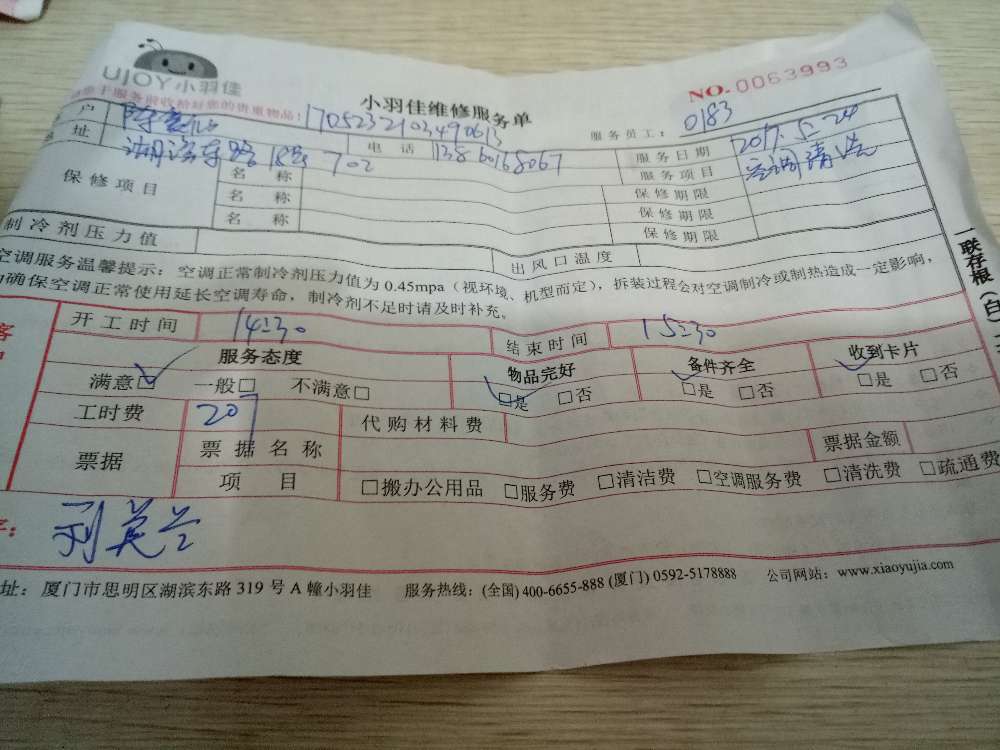 UJOY小羽佳
小羽佳维修服务单
NO.0063993
服务前收拾好您的贵重物品!
1705232103490613
服务员工: 0183
户
电话 13860168067
服务日期 2017.5.24
址 18号 702
服务项目 空调清洗
保修项目
名称 保修期限
名称 保修期限
名称 保修期限
制冷剂压力值 出风口温度
空调服务温馨提示:空调正常制冷剂压力值为0.45mpa(视环境、机型而定),拆装过程会对空调制冷或制热造成一定影响,
确保空调正常使用延长空调寿命,制冷剂不足时请及时补充。
开工时间 14:30 结束时间 15:30
服务态度 物品完好 备件齐全 收到卡片
满意□ 一般□ 不满意□ □是 □否 □是 □否 □是 □否
工时费 207 代购材料费
票据 票据名称 票据金额
项目 □搬办公用品 □服务费 □清洁费 □空调服务费 □清洗费 □疏通费
址:厦门市思明区湖滨东路319号A幢小羽佳 服务热线:(全国)400-6655-888 (厦门) 0592-5178888 公司网站:www.xiaoyujia.com
一联存根(白)